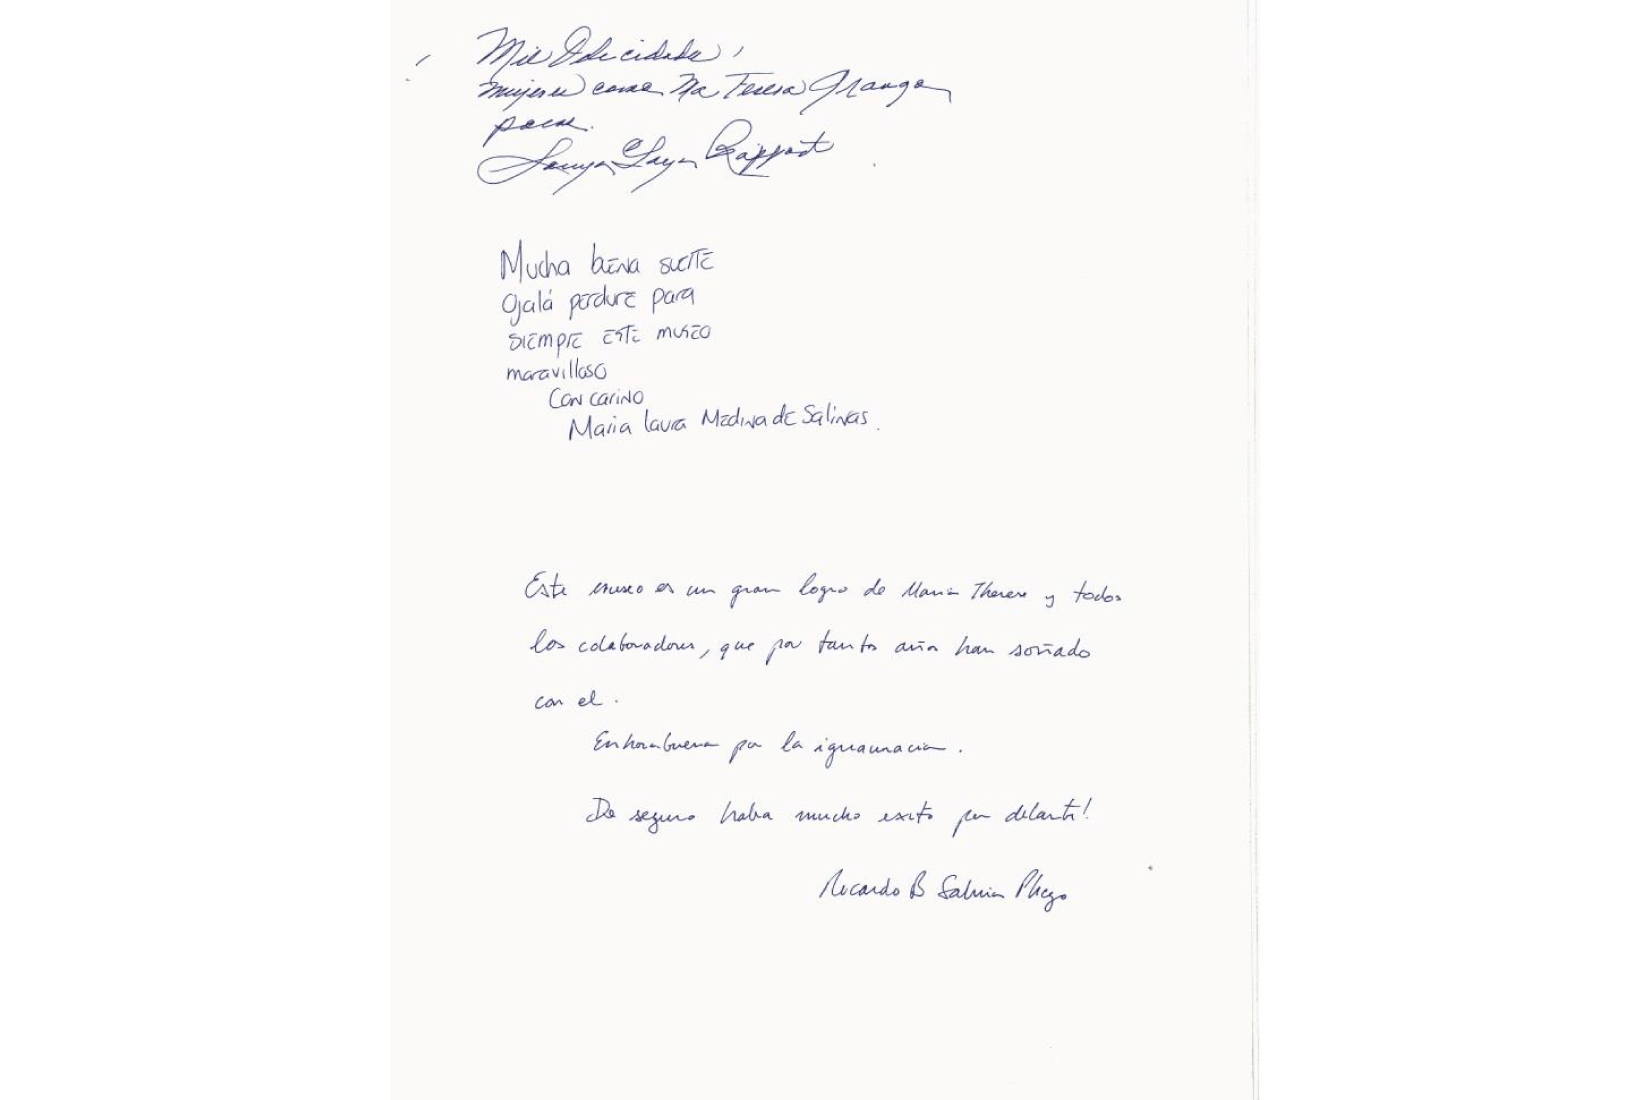 Mil Felicidades,
mujeres como Ma Teresa
pocas.
Mucha buena suerte
Ojalá perdure para
siempre este museo
maravilloso
Con cariño
Maria Laura Medina de Salinas.
Este museo es un gran logro de Maria Therese y todos
los colaboradores, que por tantos años han soñado
con el.
Enhorabuena por la iguauracion.
De seguro habra mucho exito por delante!
Ricardo B Salinas Pliego